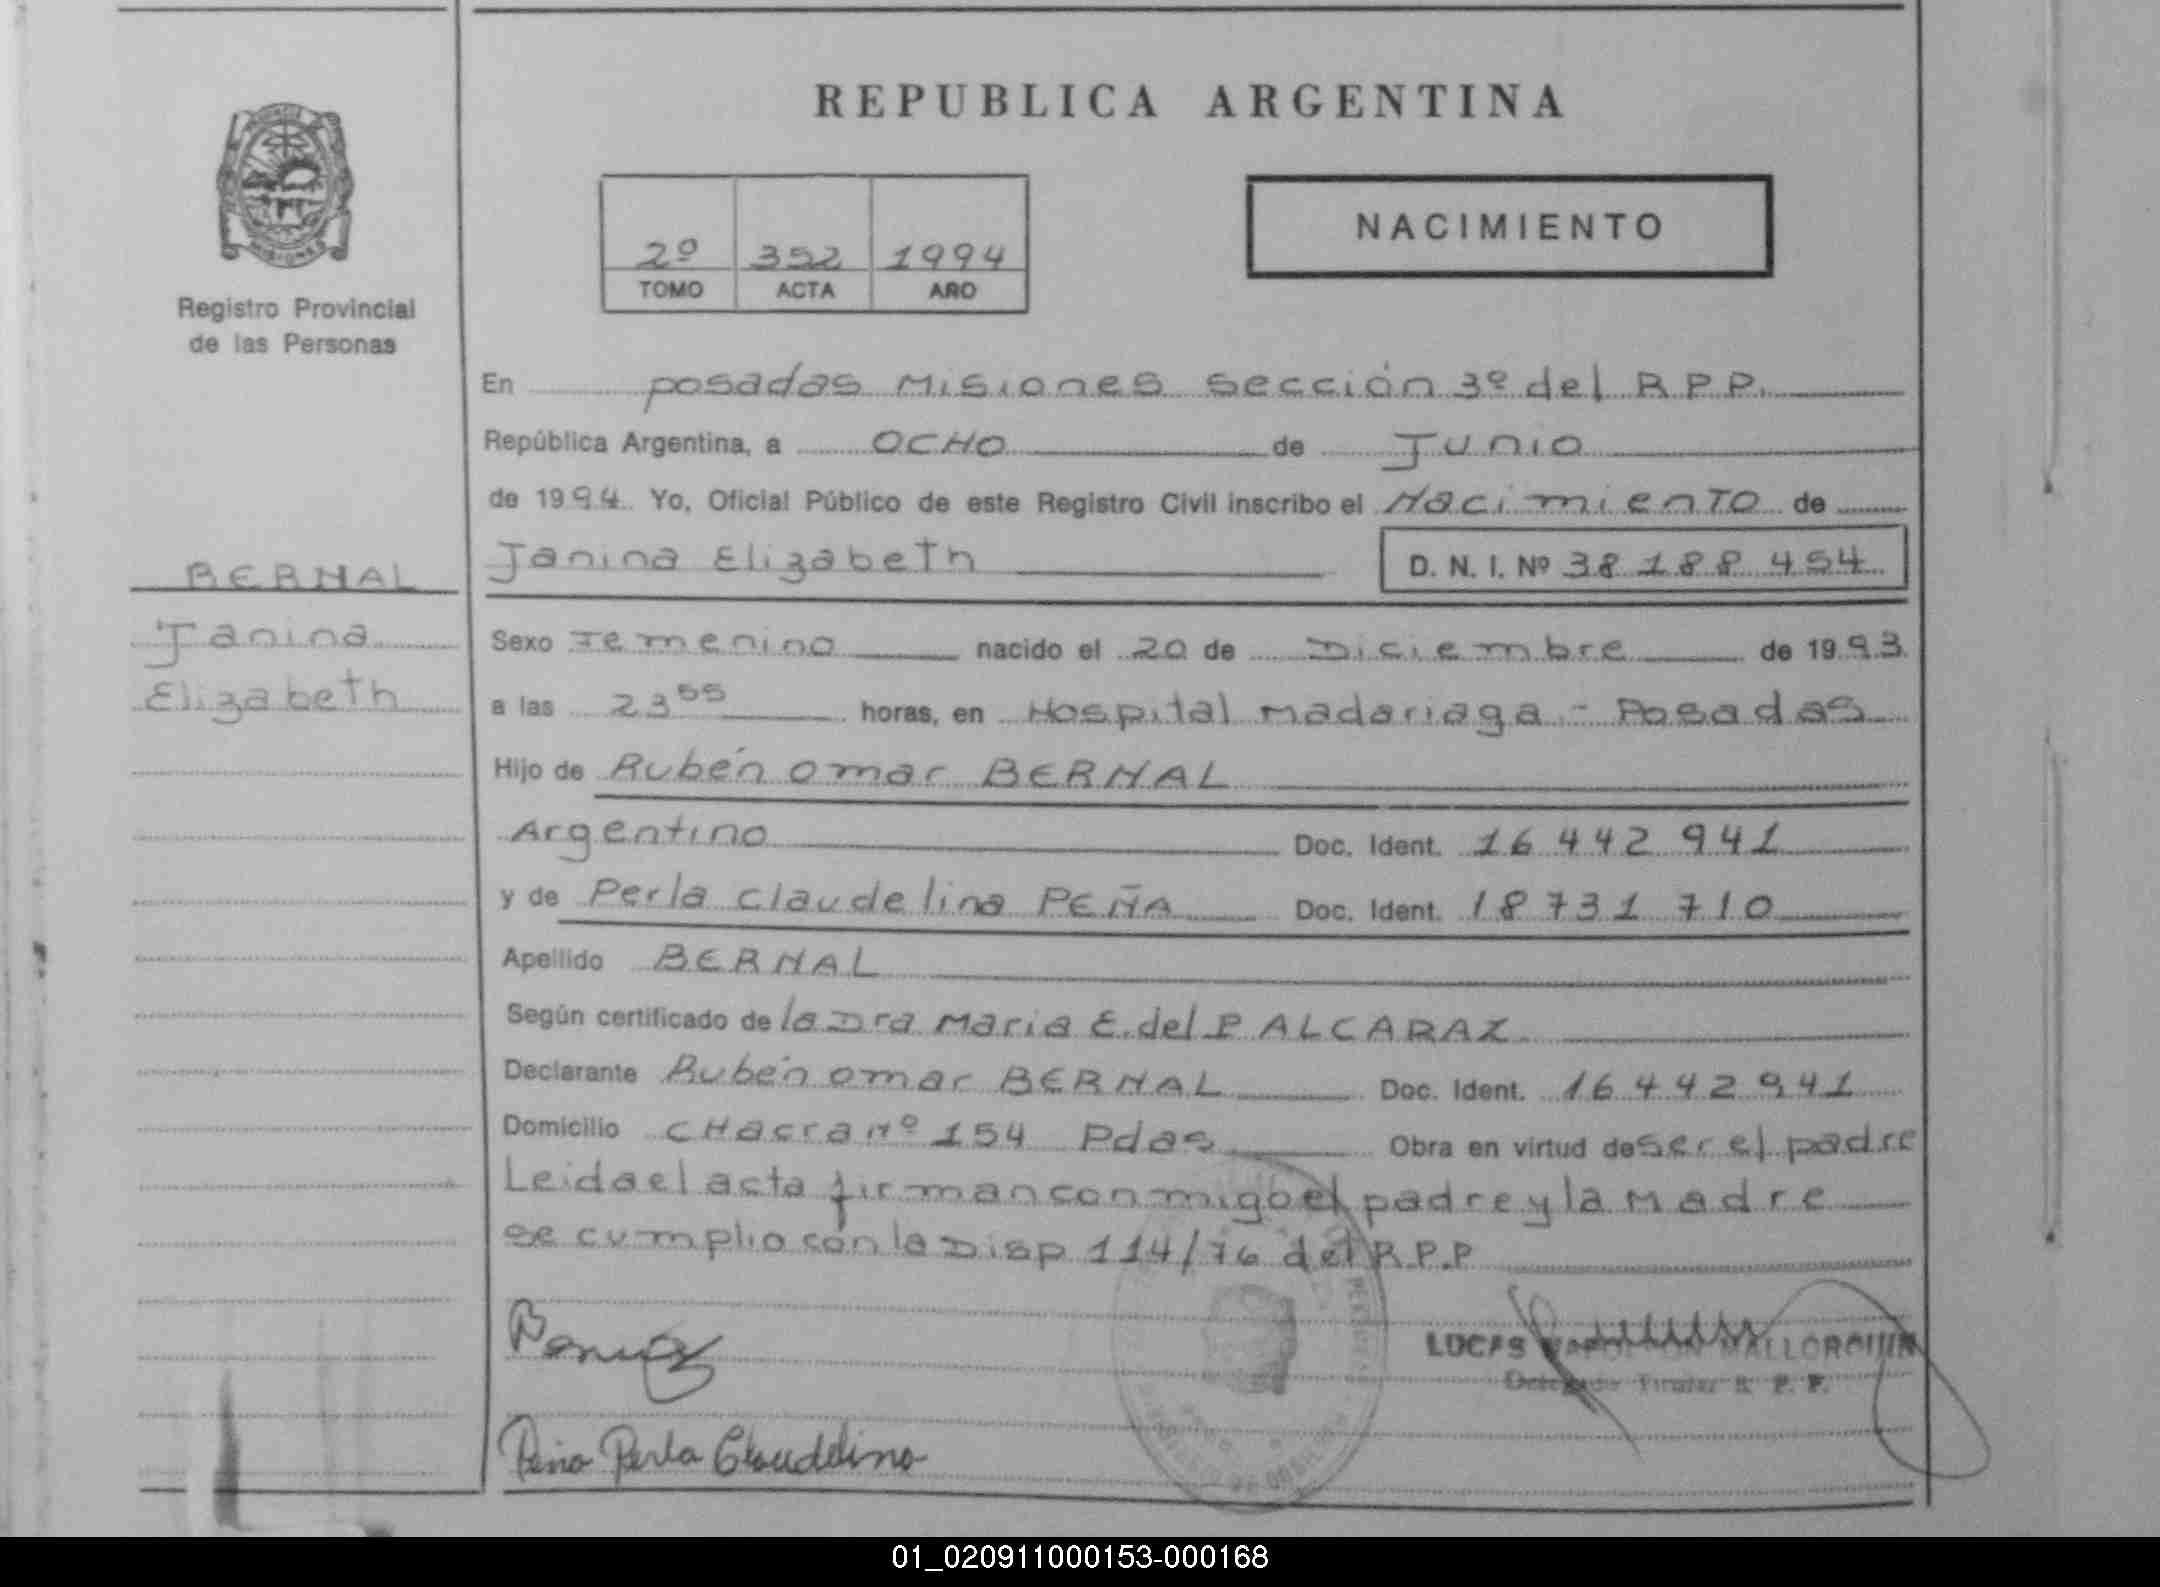 REPUBLICA ARGENTINA
MISIONES
Registro Provincial
de las Personas
2º 352 1994
TOMO ACTA AÑO
NACIMIENTO
En posadas Misiones sección 3º del R.P.P.
República Argentina, a OCHO de Junio
de 1994. Yo, Oficial Público de este Registro Civil inscribo el Nacimiento de
Janina Elizabeth D. N. I. Nº 38 188 454
BERNAL
Janina
Elizabeth
Sexo Femenino nacido el 20 de Diciembre de 1993
a las 23 55 horas, en Hospital Madariaga - Posadas
Hijo de Rubén Omar BERNAL
Argentino Doc. Ident. 16 442 941
y de Perla Claudelina PEÑA Doc. Ident. 18 731 710
Apellido BERNAL
Según certificado de la Dra Maria E. del P ALCARAZ
Declarante Rubén Omar BERNAL Doc. Ident. 16 442 941
Domicilio CHacra Nº 154 Pdas Obra en virtud de ser el padre
Leida el acta firman conmigo el padre y la Madre
se cumplio con la Disp 114/76 del R.P.P
LUCAS
Delegado Titular R. P. P.
Peña Perla Claudelina
01_020911000153-000168